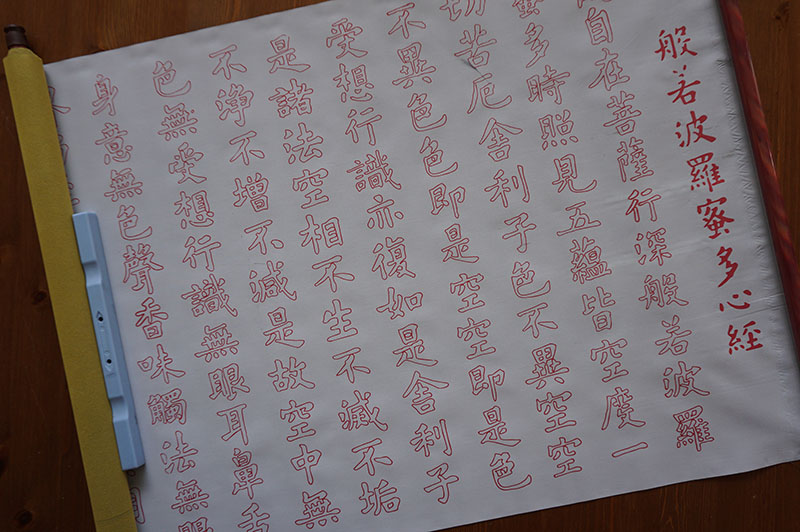 般若波羅蜜多心經
自在菩薩行深般若波羅
蜜多時照見五蘊皆空度一
切苦厄舍利子色不異空空
不異色色即是空空即是色
受想行識亦復如是舍利子
是諸法空相不生不滅不垢
不淨不增不減是故空中無
色無受想行識無眼耳鼻舌
身意無色聲香味觸法無眼